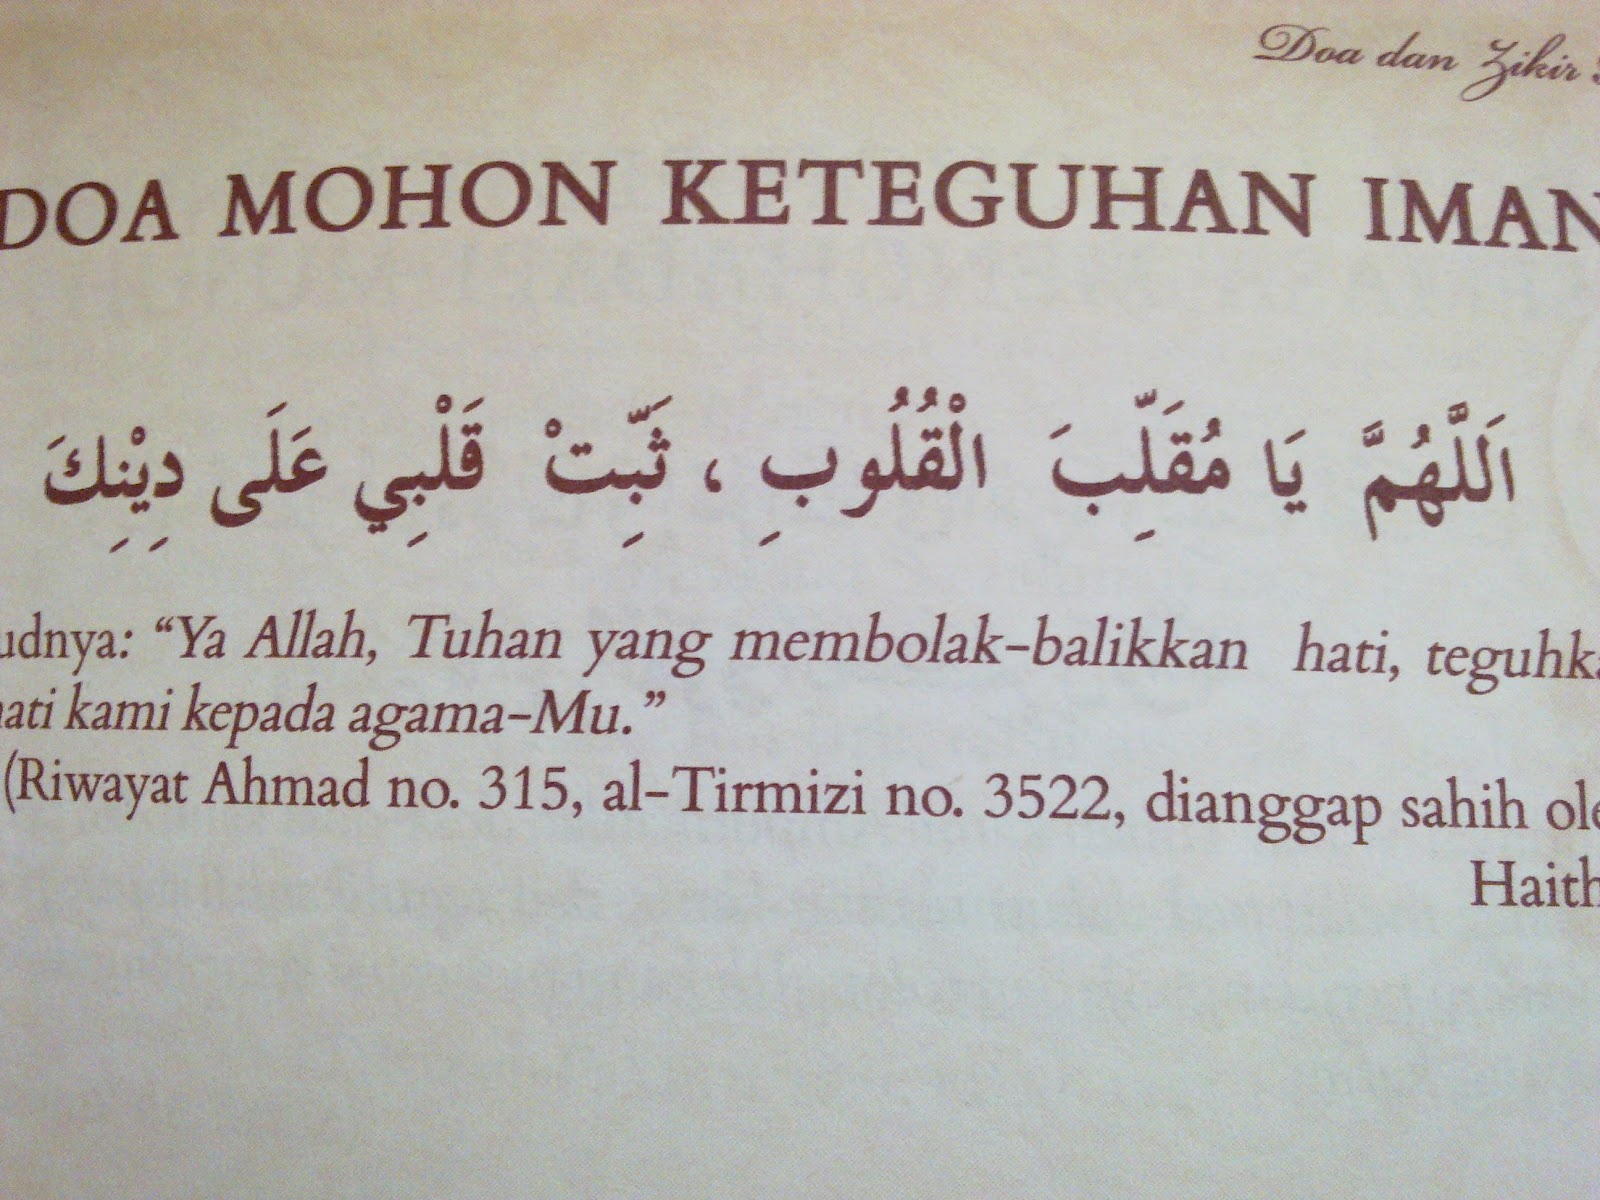 Doa dan Zikir
DOA MOHON KETEGUHAN IMAN
اَللَّهُمَّ يَا مُقَلِّبَ الْقُلُوبِ ، ثَبِّتْ قَلْبِي عَلَى دِيْنِكَ
udnya: “Ya Allah, Tuhan yang membolak-balikkan hati, teguhka
hati kami kepada agama-Mu.”
(Riwayat Ahmad no. 315, al-Tirmizi no. 3522, dianggap sahih ole
Haith